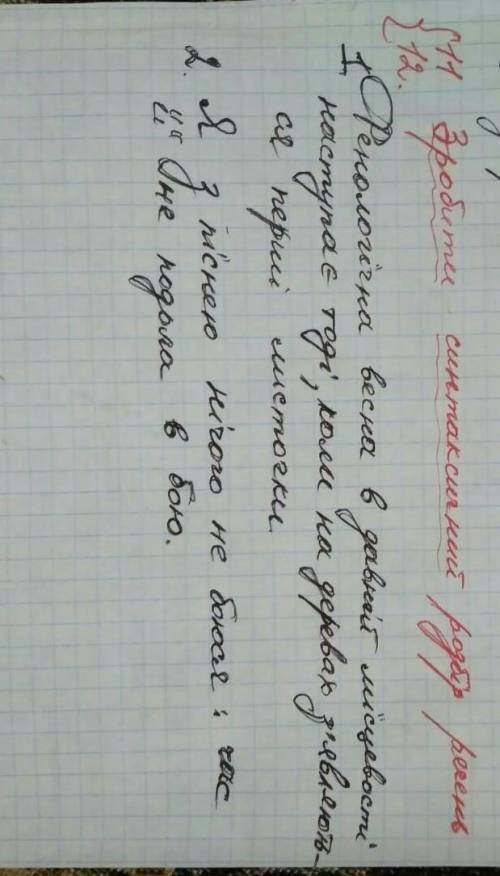 {11 Зробити синтаксичний розбір речень
{12.
1. Фенологічна весна в давній місцевості
наступає тоді, коли на деревах з'являють-
ся перші листочки.
2. Я з піснею нічого не боюся: час
її не подола в бою.